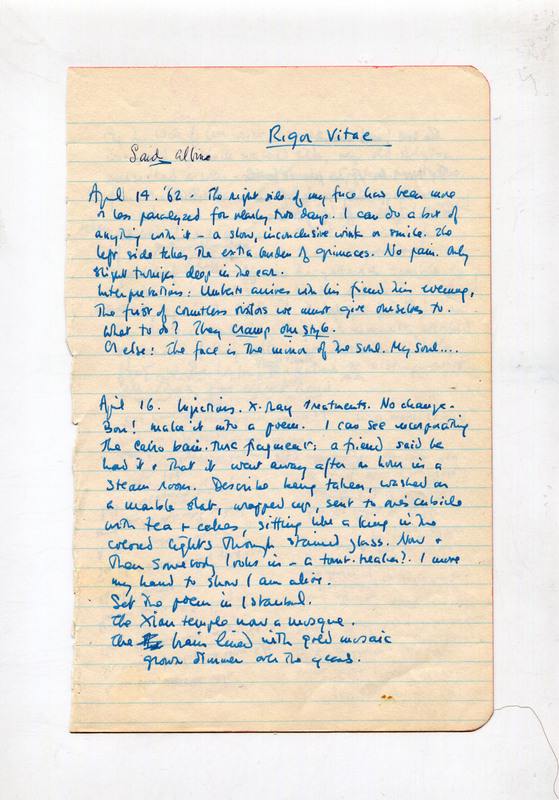 Rigor Vitae
Sand albino
April 14. '62. The right side of my face has been more
or less paralyzed for nearly two days. I can do a bit of
anything with it – a slow, inconclusive wink or smile. The
left side takes the extra burden of grimaces. No pain. Only
slight twinges deep in the ear.
Interpretations: Umberto arrives with his friend this evening,
the first of countless visitors we must give ourselves to.
What to do? They cramp our style.
Or else: The face is the mirror of the soul. My soul....
April 16. Injections. X-Ray treatments. No change.
Bon! make it into a poem. I can see incorporating
the Cairo bain-turc fragment: a friend said he
had it & that it went away after an hour in a
steam room. Describe being taken, washed on
a marble slab, wrapped up, sent to one's cubicle
with tea & cakes, sitting like a king in the
colored lights through stained glass. Now &
then somebody looks in – a tourist? I move
my hand to show I am alive.
Set the poem in Istanbul.
The Xian temple now a mosque.
The brain lined with gold mosaic
grown dimmer over the years.